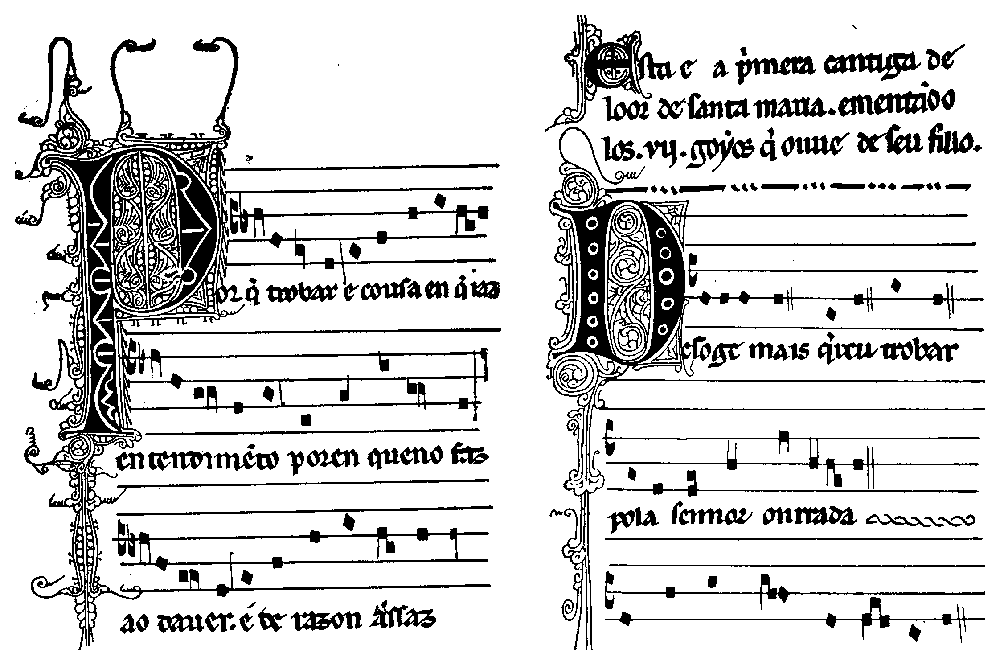 Por q̇ trobar e cousa en q̇ iaz
entendimẽto poren queno faz
ao dauer. é de razon assaz
Esta e a p̾mera cantiga de
loor de santa maria. ementãdo
los .vij. goyos q̇ ouue de seu fillo.
Desoge mais q̇reu trobar
pola sennor onrrada